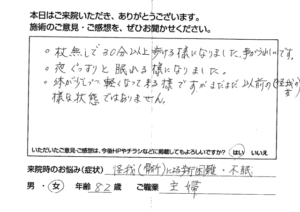 本日はご来院いただき、ありがとうございます。
施術のご意見・ご感想を、ぜひお聞かせください。
○杖無しで30分以上歩ける様になりました。事がうれしいです。
○夜ぐっすりと眠れる様になりました。
○体が軽くなって来る様ですがまだまだ以前の(怪我の前)
様な状態ではありません。
いただいたご意見・ご感想は、今後HPやチラシなどに掲載してもよろしいですか? はい いいえ
来院時のお悩み(症状) 怪我(骨折)による歩行困難・不眠
男・女 年齢 82歳 ご職業 主婦